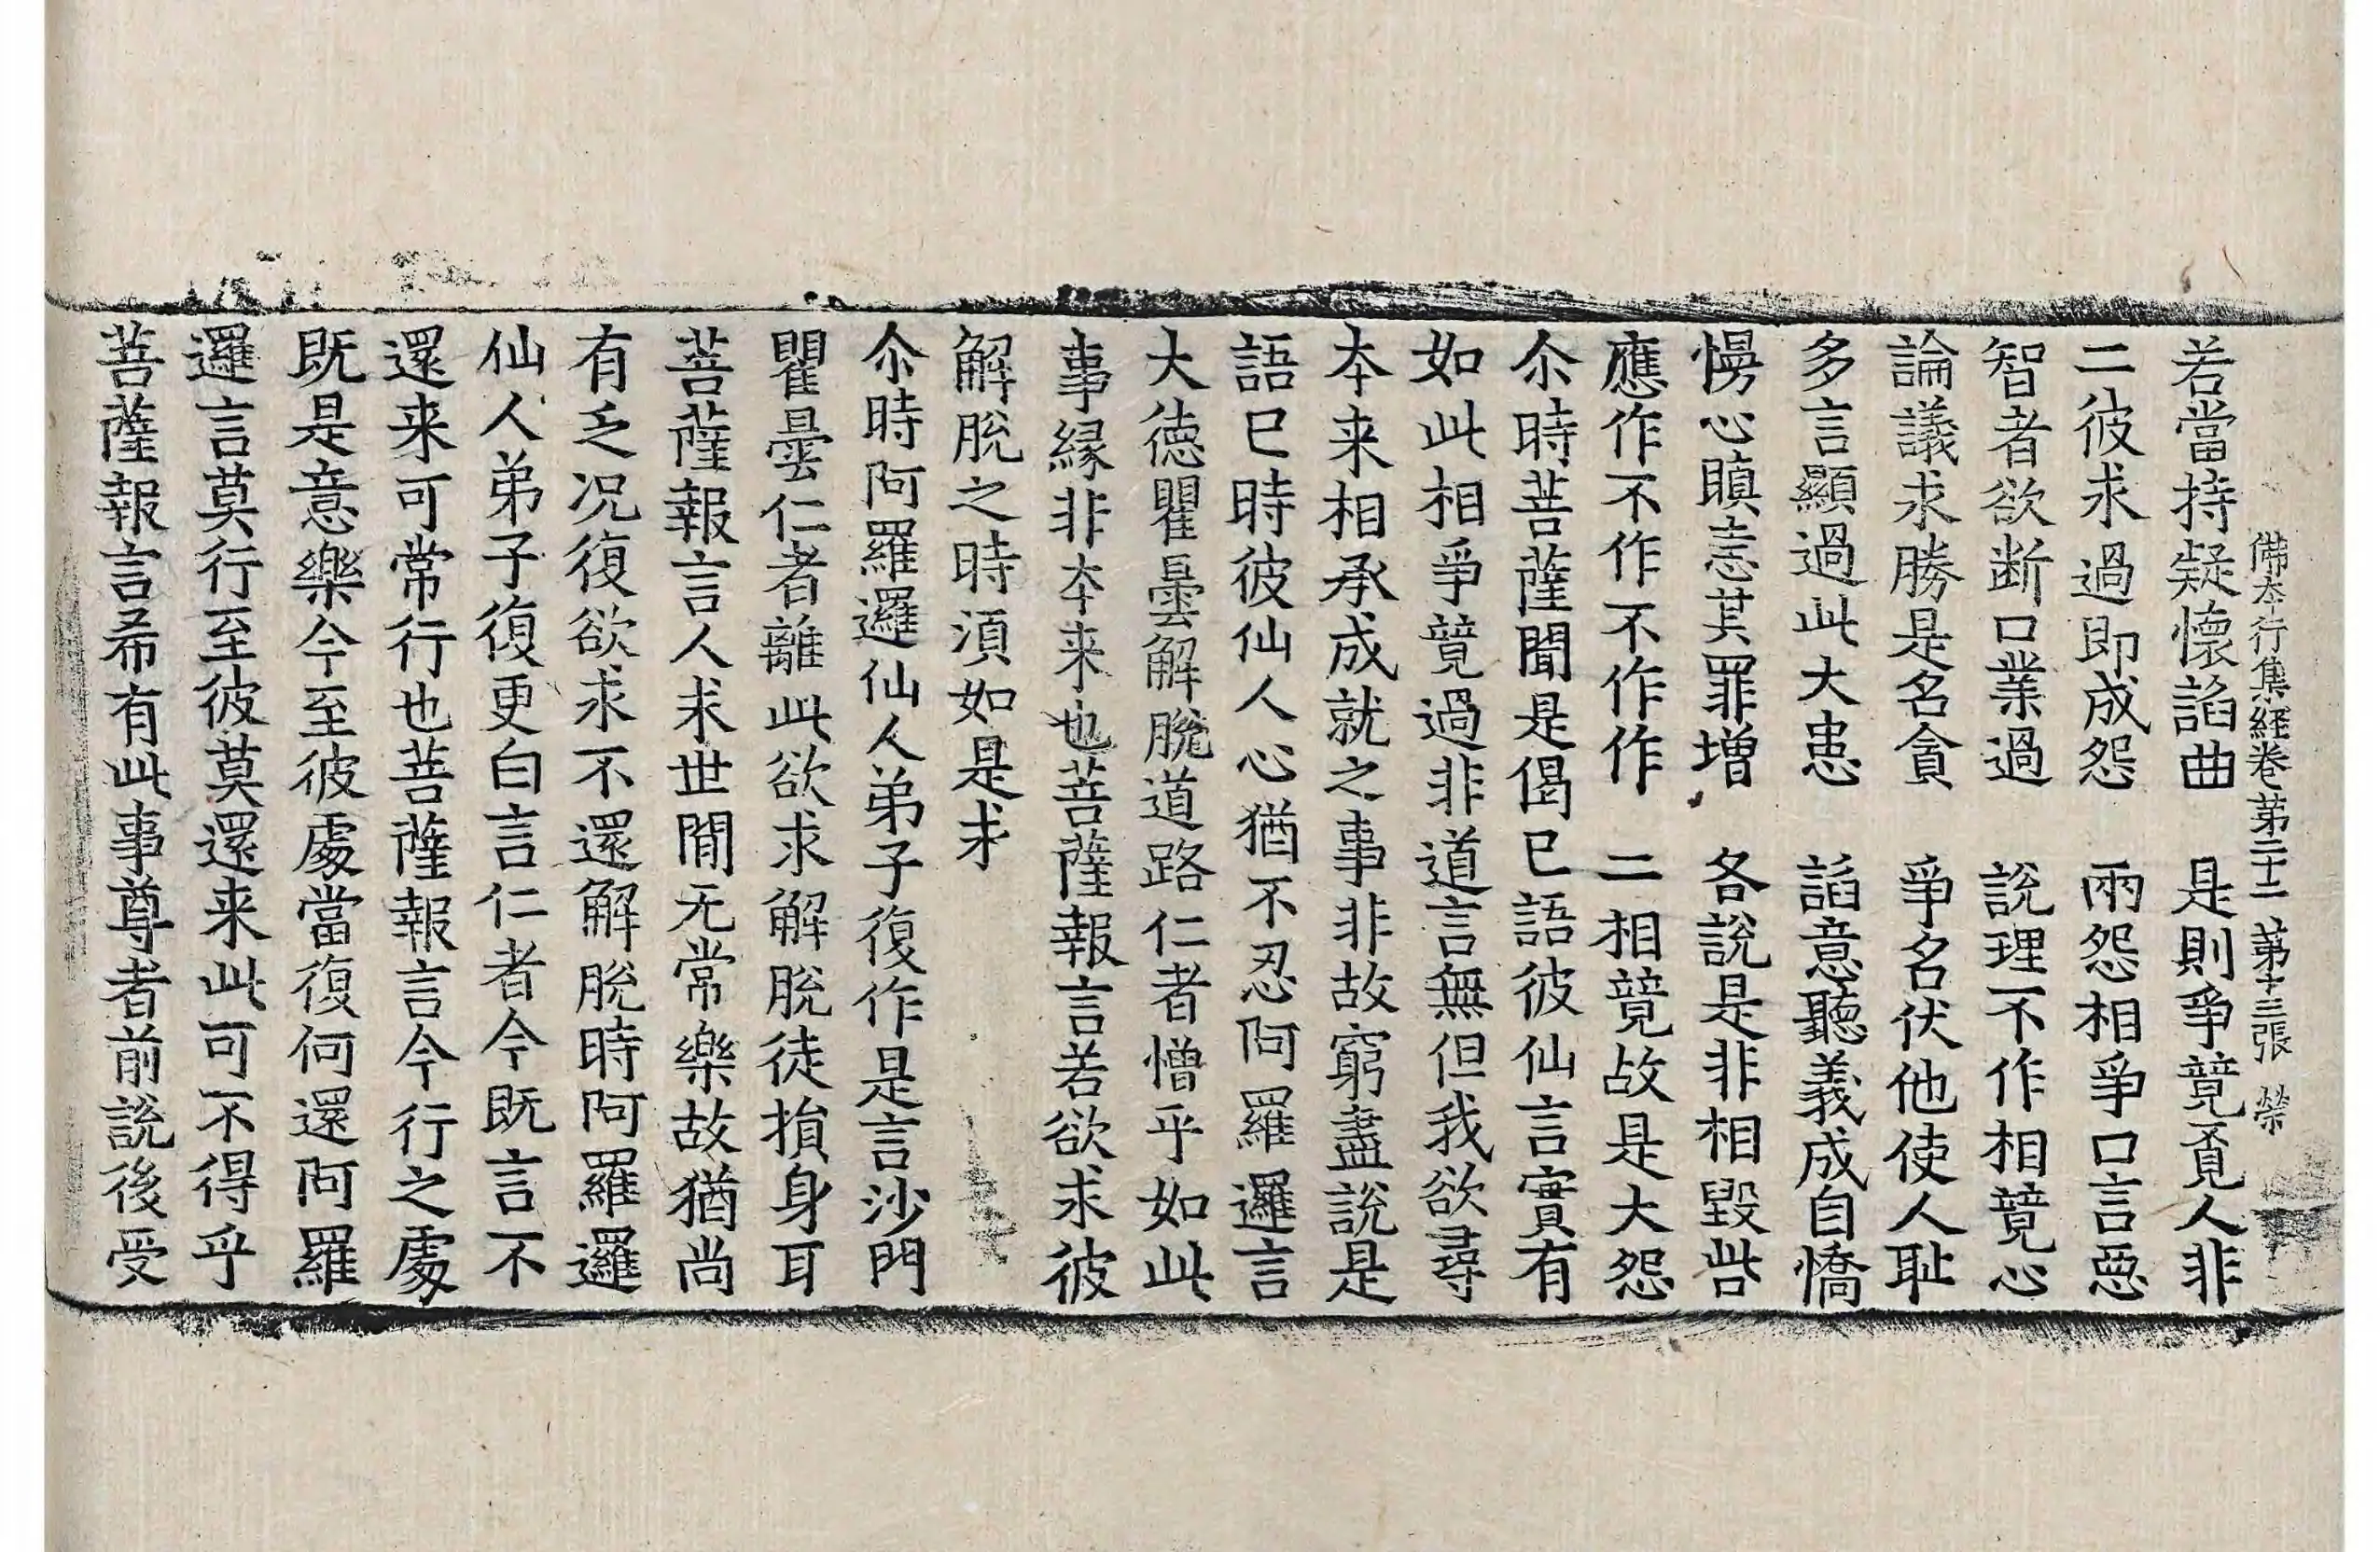 佛本行集經卷第二十二　第十三張　榮
若當持疑懷諂曲　是則爭競覓人非
二彼求過即成怨　兩怨相爭口言惡
智者欲断口業過　說理不作相競心
論議求勝是名貪　爭名伏他使人耻
多言顯過此大患　諂意聽義成自憍
慢心瞋恚其罪增　各說是非相毀呰
應作不作不作作　二相競故是大怨
尒時菩薩聞是偈已語彼仙言實有
如此相爭競過非道言無但我欲尋
本来相承成就之事非故窮盡說是
語已時彼仙人心猶不忍阿羅邏言
大德瞿曇解脫道路仁者憎乎如此
事緣非本来也菩薩報言若欲求彼
解脫之時須如是求
尒時阿羅邏仙人弟子復作是言沙門
瞿曇仁者離此欲求解脫徒損身耳
菩薩報言人求世間无常樂故猶尚
有乏况復欲求不還解脫時阿羅邏
仙人弟子復更白言仁者今既言不
還来可常行也菩薩報言今行之處
既是意樂今至彼處當復何還阿羅
邏言莫行至彼莫還来此可不得乎
菩薩報言希有此事尊者前說後受